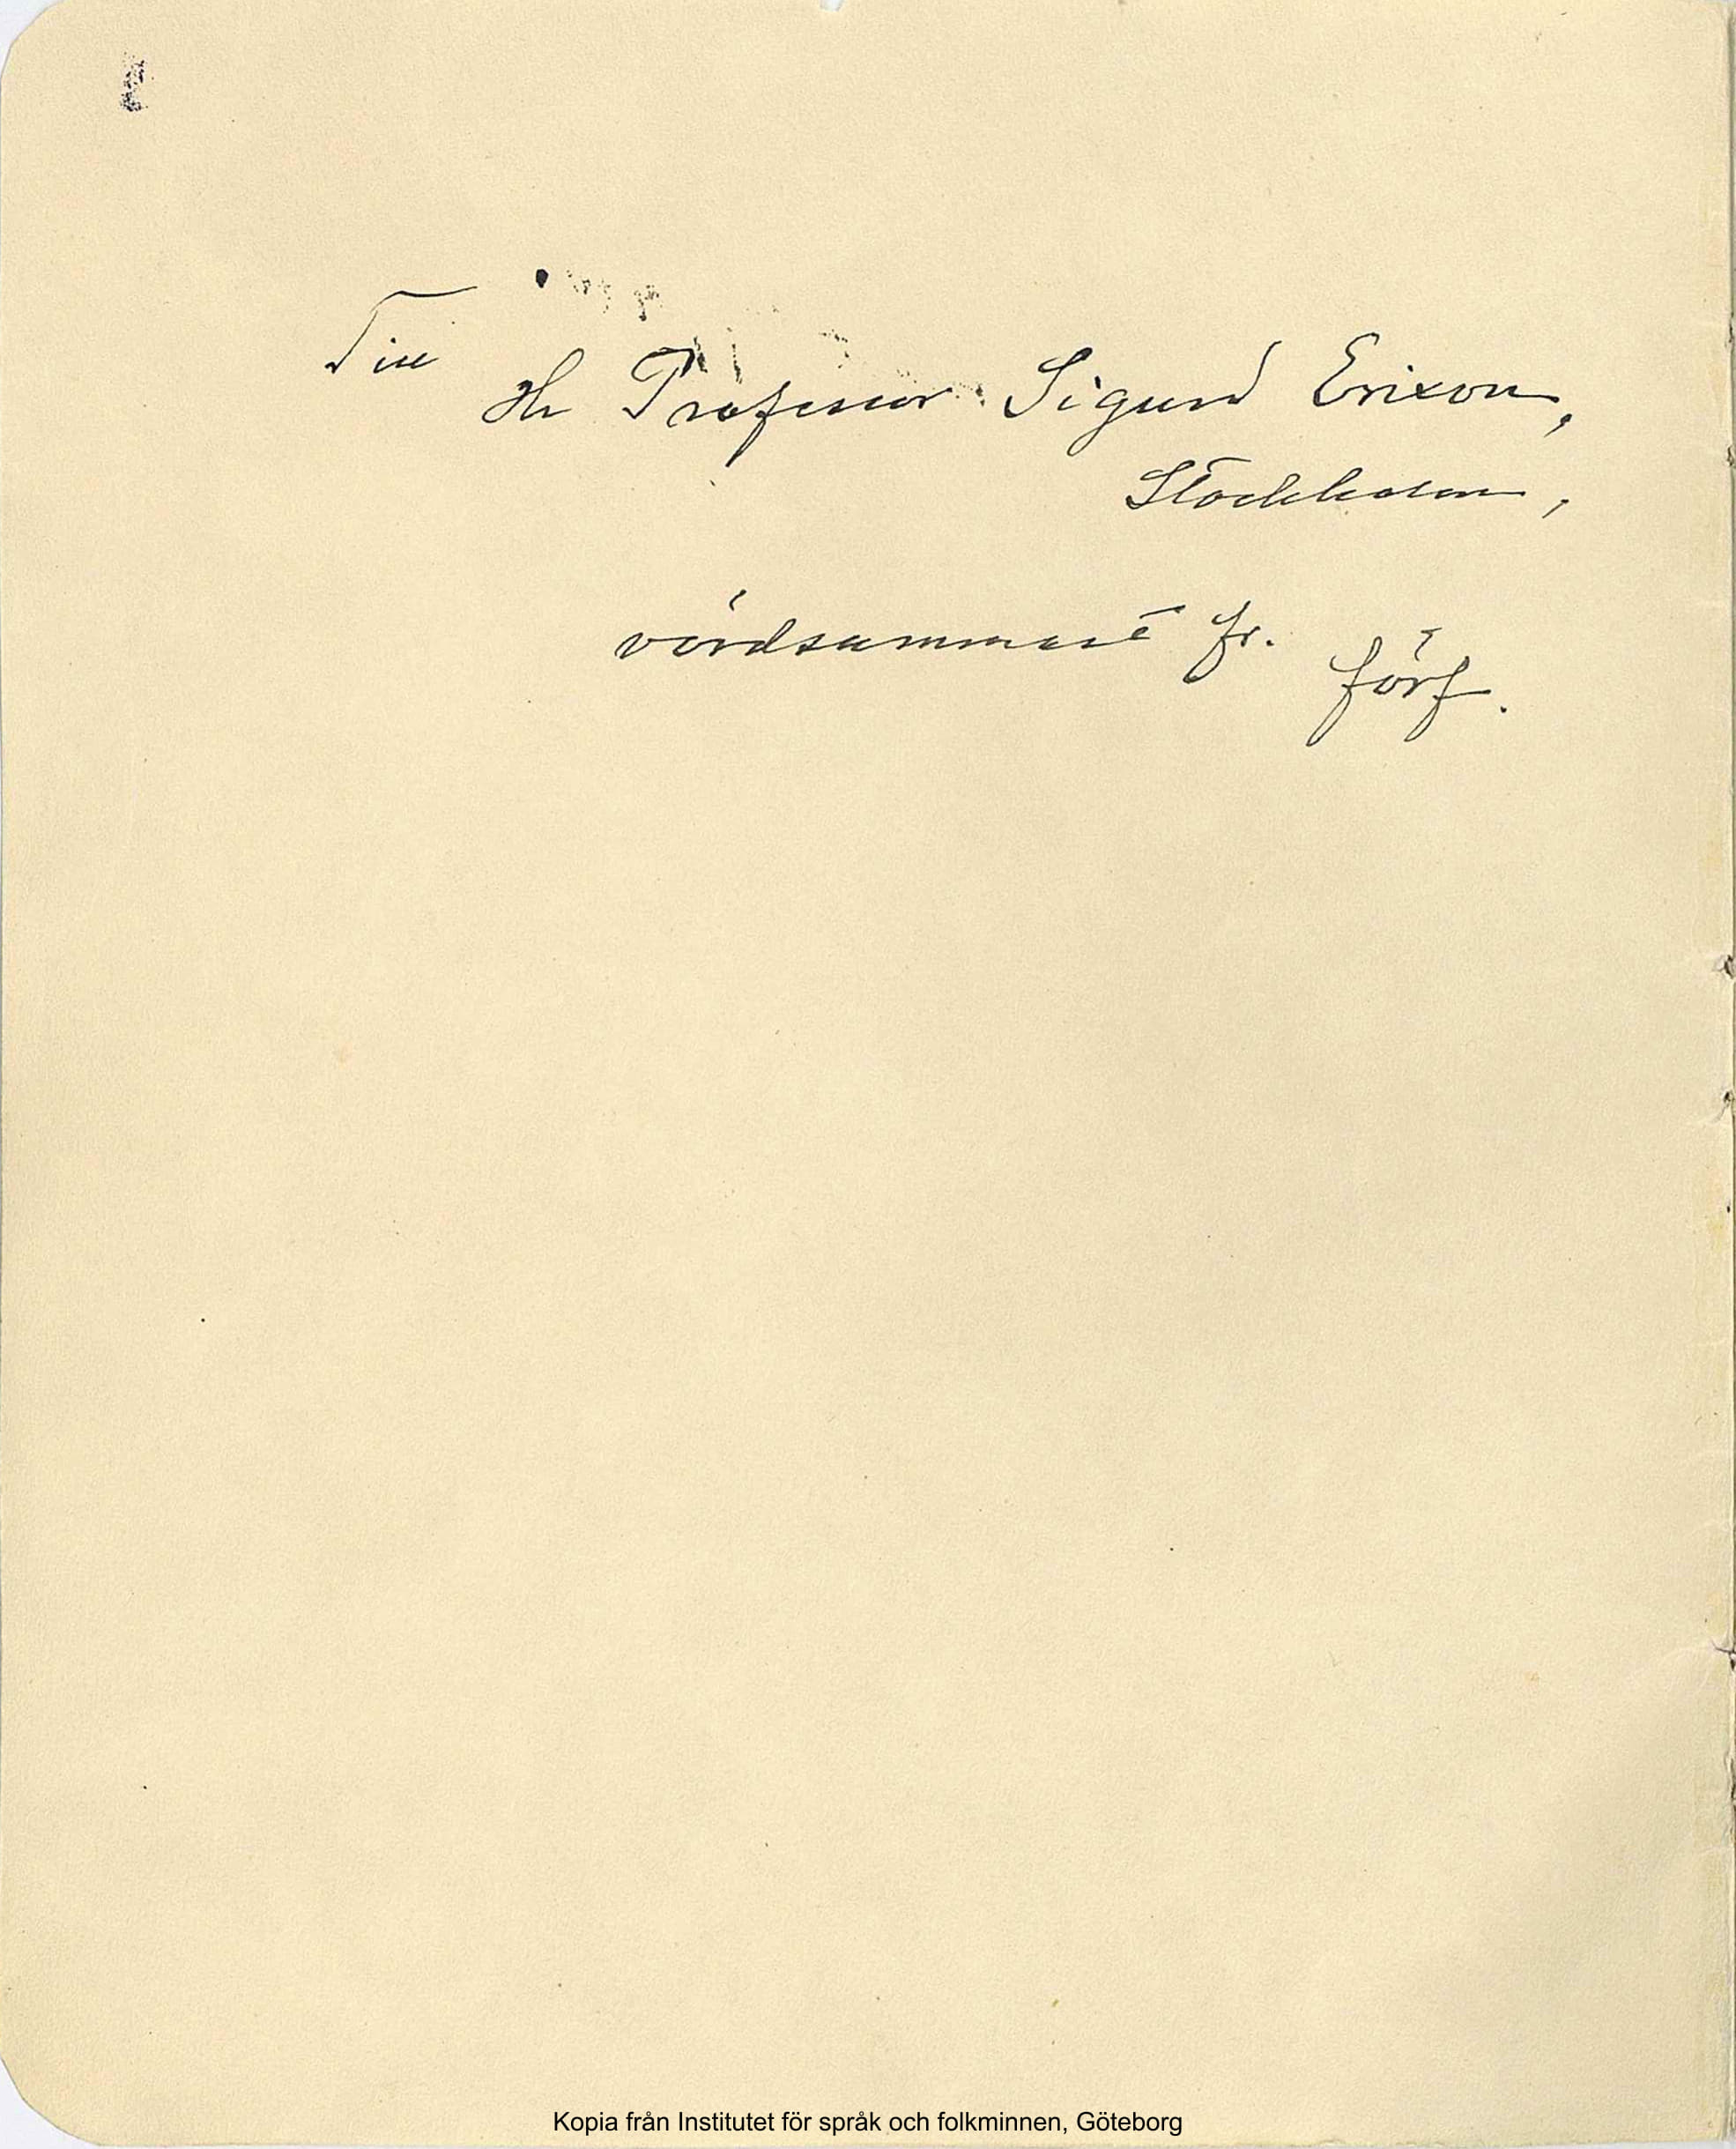 Till
Hr Professor Sigurd Erixon,
Stockholm,
vördsammast fr.
förf.
Kopia från Institutet för språk och folkminnen, Göteborg